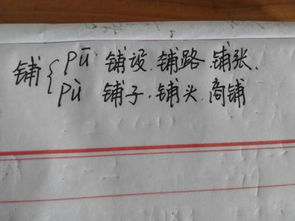 铺{pū 铺设.铺路.铺张.
pù 铺子.铺头.商铺